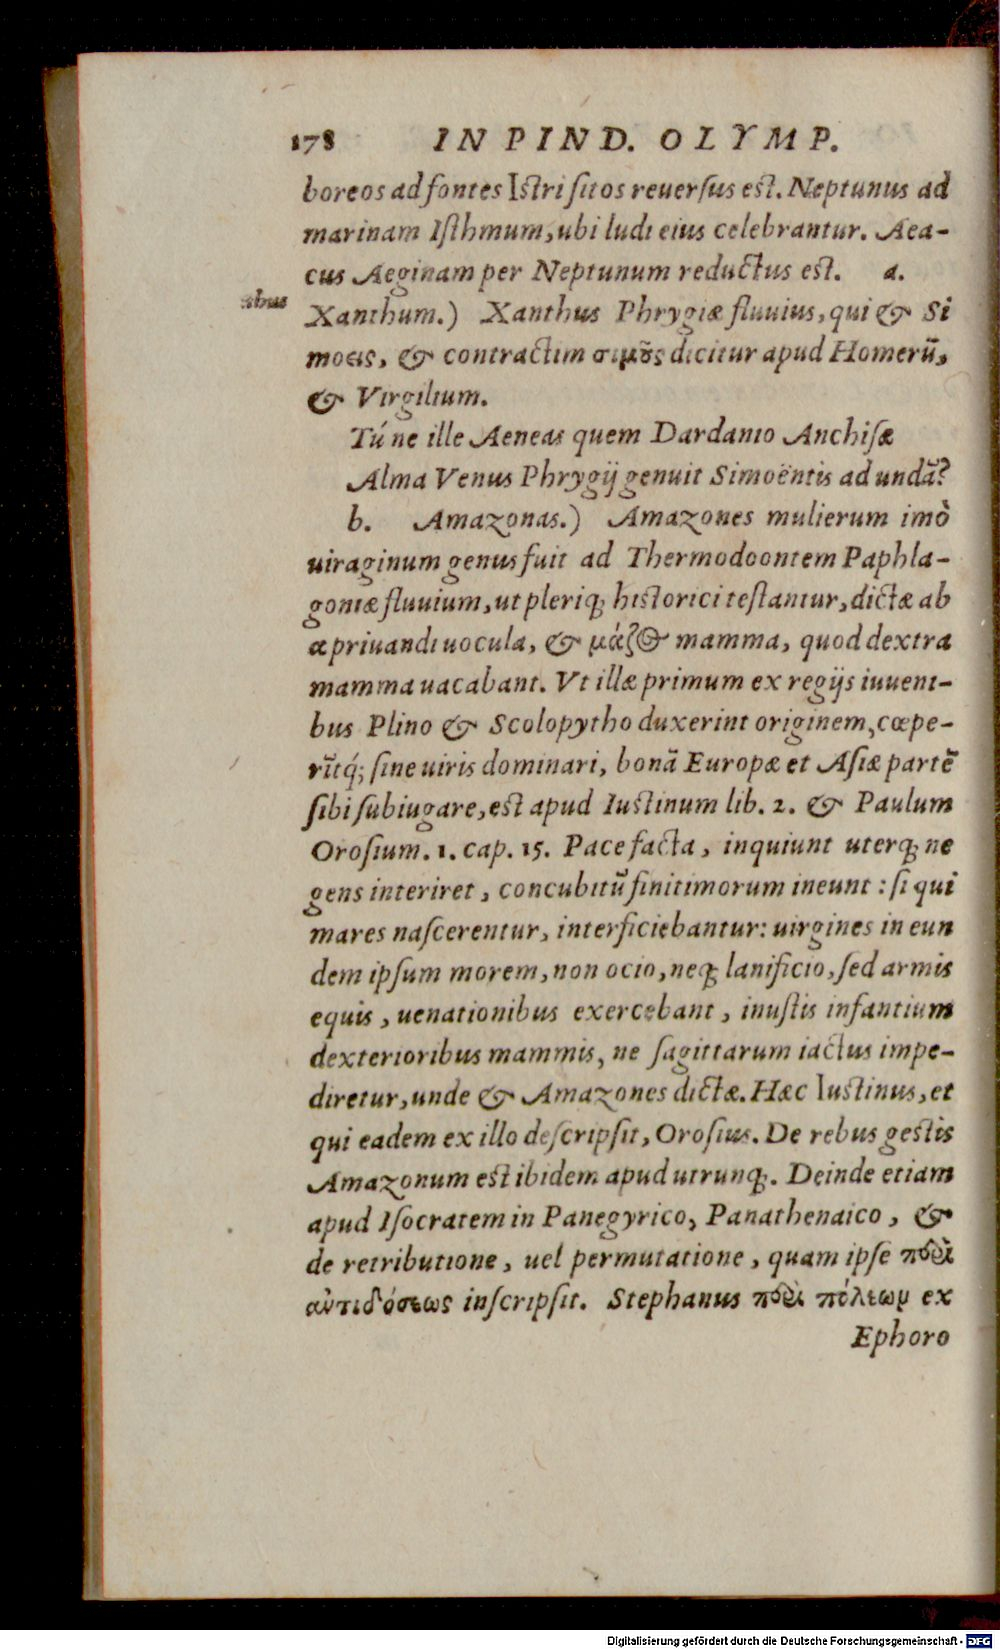 178 IN PIND. OLYMP.
boreos ad fontes Istri sitos reuersus est. Neptunus ad
marinam Isthmum, ubi ludi eius celebrantur. Aea-
cus Aeginam per Neptunum reductus est. a.
Xanthum.) Xanthus Phrygiæ fluuius, qui & Si
moeis, & contractim σιμοῦς dicitur apud Homerū,
& Virgilium.
Tú ne ille Aeneas quem Dardanio Anchisæ
Alma Venus Phrygij genuit Simoëntis ad undā?
b. Amazonas.) Amazones mulierum imò
uiraginum genus fuit ad Thermodoontem Paphla-
goniæ fluuium, ut pleriq; historici testantur, dictæ ab
α priuandi uocula, & μάζος mamma, quod dextra
mamma uacabant. Vt illæ primum ex regijs iuueni-
bus Plino & Scolopytho duxerint originem, cœpe-
rītq́; sine uiris dominari, bonā Europæ et Asiæ partē
sibi subiugare, est apud Iustinum lib. 2. & Paulum
Orosium. 1. cap. 15. Pace facta, inquiunt uterq; ne
gens interiret, concubitū finitimorum ineunt: si qui
mares nascerentur, interficiebantur: uirgines in eun
dem ipsum morem, non ocio, neq; lanificio, sed armis
equis, uenationibus exercebant, inustis infantium
dexterioribus mammis, ne sagittarum iactus impe-
diretur, unde & Amazones dictæ. Hæc Iustinus, et
qui eadem ex illo descripsit, Orosius. De rebus gestis
Amazonum est ibidem apud utrunq;. Deinde etiam
apud Isocratem in Panegyrico, Panathenaico, &
de retributione, uel permutatione, quam ipse περὶ
ἀντιδόσεως inscripsit. Stephanus περὶ πόλεωμ ex
Ephoro
Digitalisierung gefördert durch die Deutsche Forschungsgemeinschaft - DFG